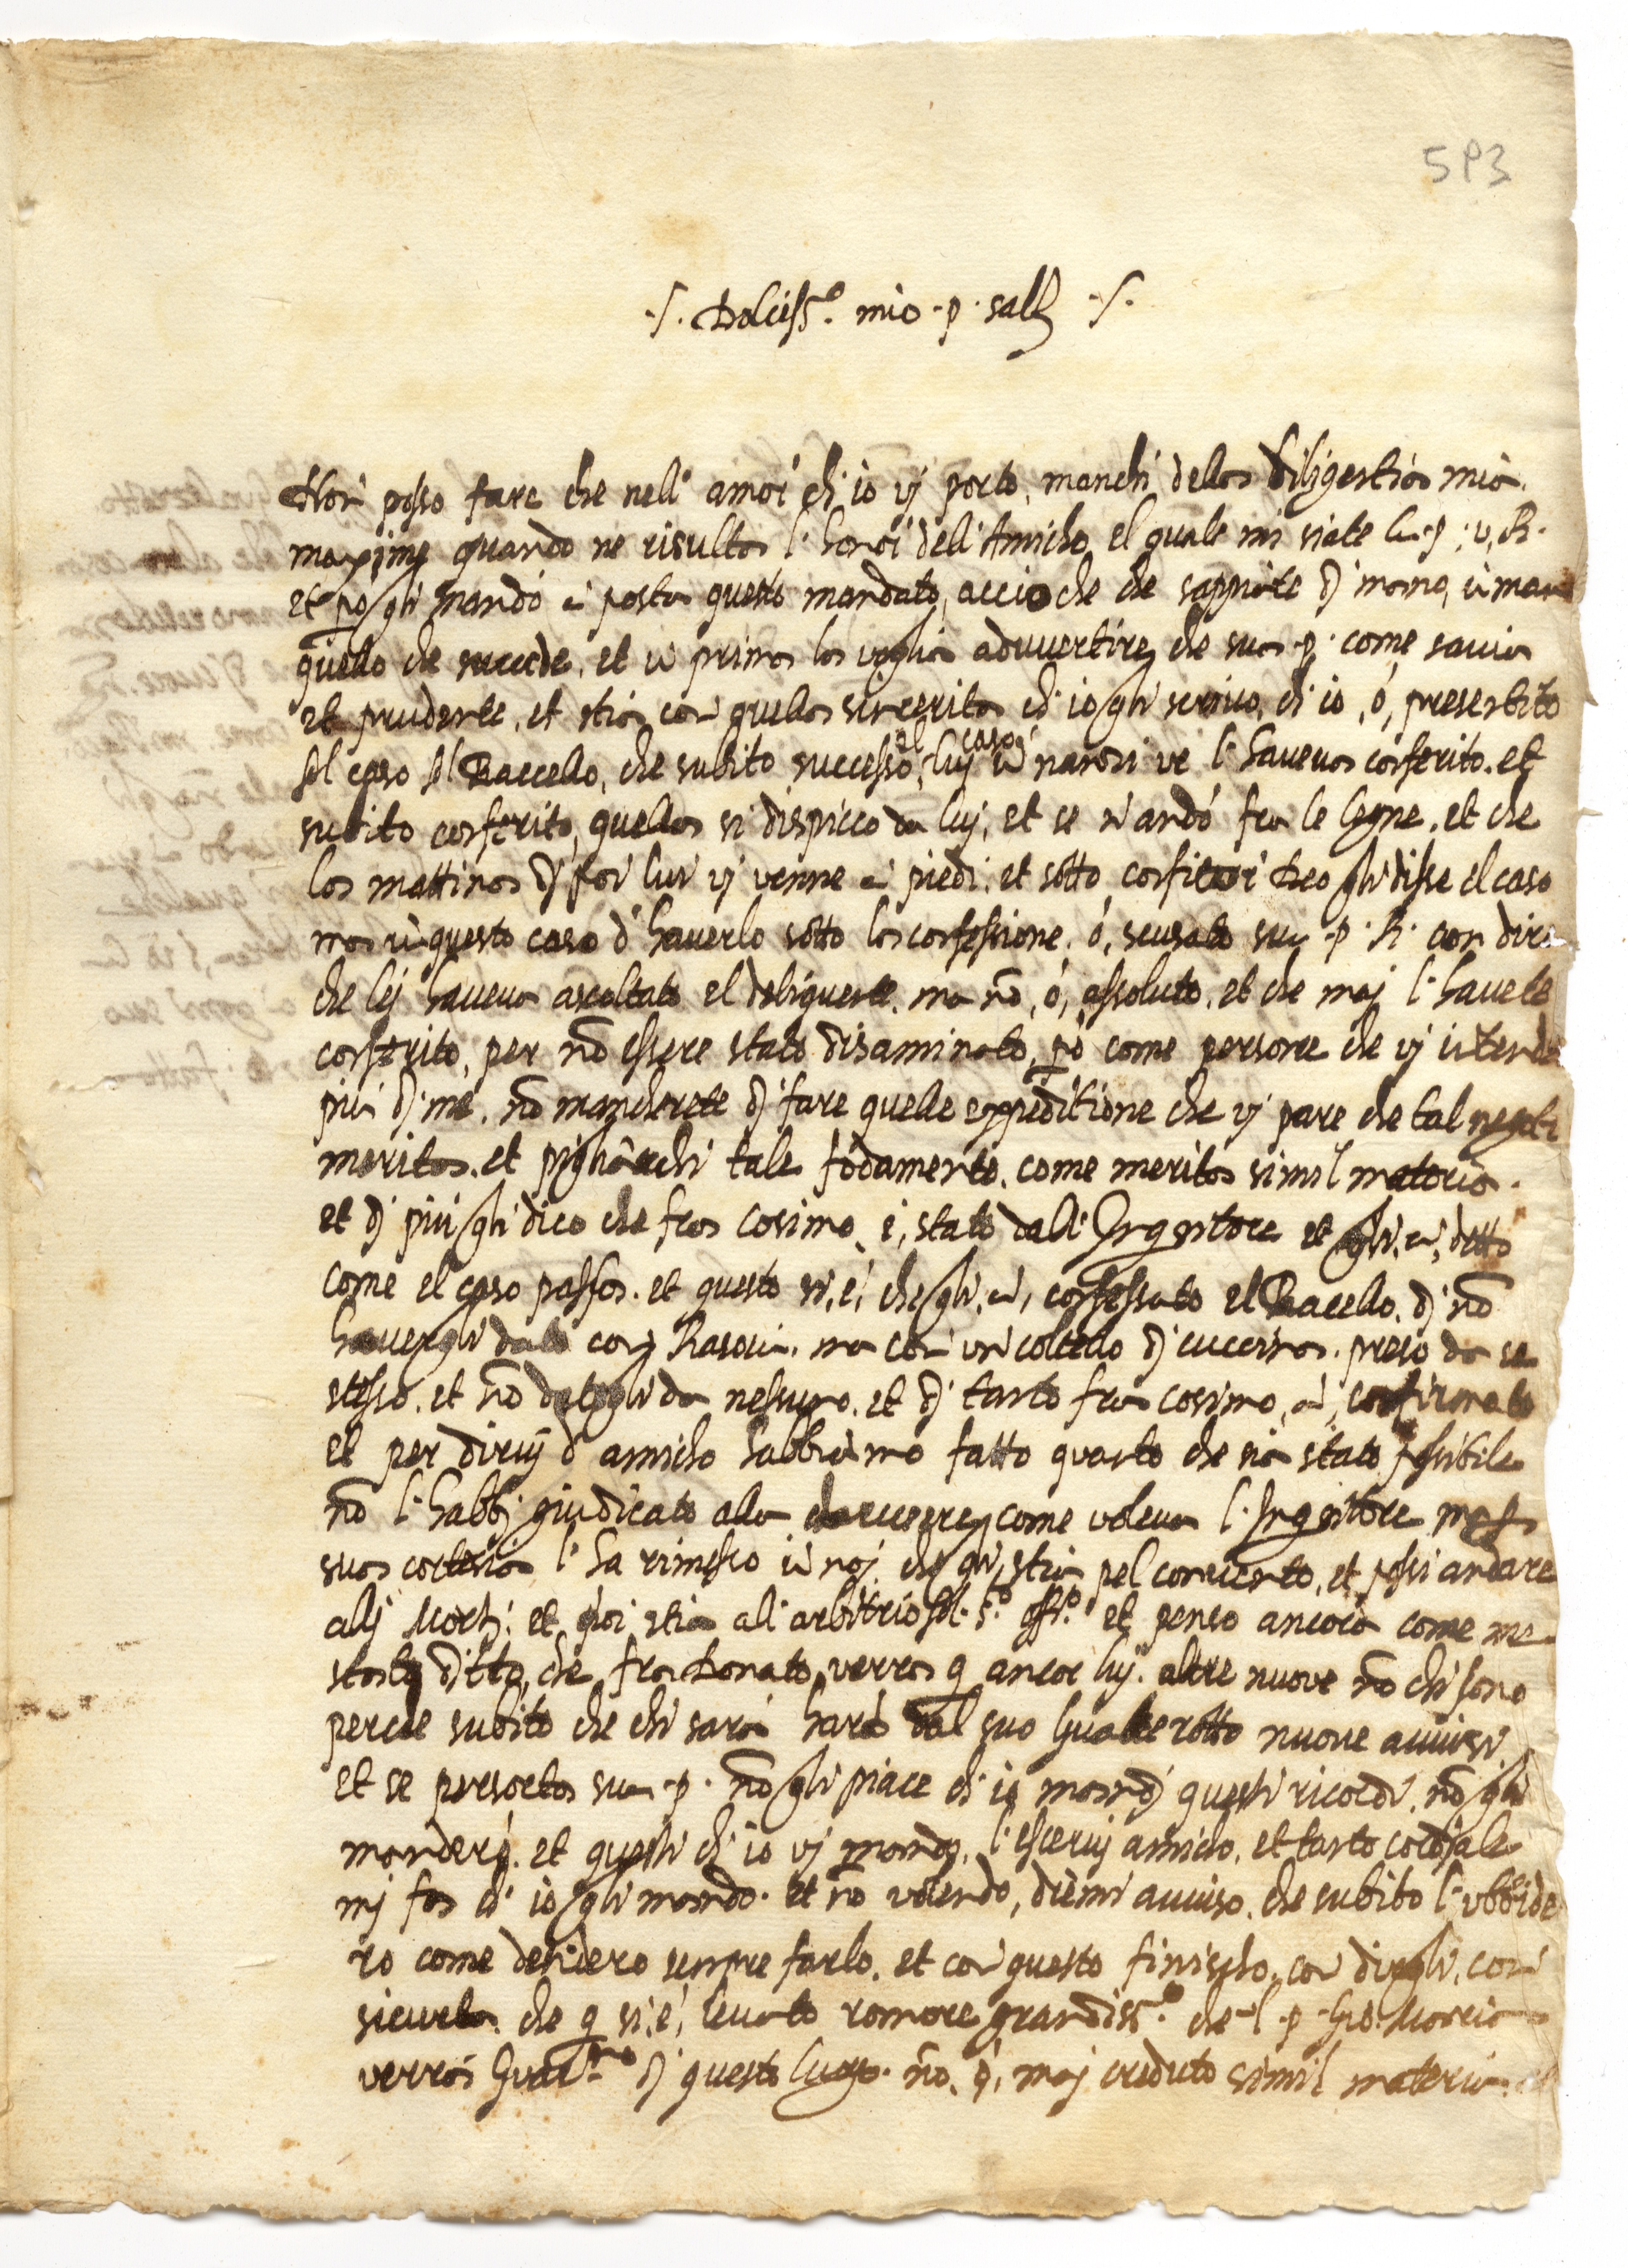 5P3
·/· Dolciss.º mio ·p· sal ·/·
Non posso fare che nell' amor ch' io vj porto, manchi della diligentia mia.
maxime quando ne risulta l' honor dell' Amicho el quale mi siate la ·p· v. R.
et po gli mando à posta questo mandato, accio che che sappiate dj mano, in man
quello che succede. et in prima la voglio advvertire che sua ·p· come savia
et prudente, et stia con quella sincerita ch' io gli scrivo. ch' io, ó, presentito
del caso del Baccello, che subito successo, el caso lui in nanzi ve l' haveva conferito. et
subito conferito, quella si dispicco da luj, et se n' andó fra le legne. et che
la mattina dj poi lui vj venne à piedi. et sotto confiteor Deo gli disse el caso
ma in questo caso d' haverlo sotto la confessione. ó, scusato sua ·p· R· con dire
che lej haveva ascoltato el delinquente. ma nõ, ó, assoluto. et che maj l' havete
conferito, per nõ essere stato disaminato, pò come persone che vj intende
piu dj me. nõ mancherete dj fare quelle expeditione che vj pare che tal negoti
merita. et pigliarchi tale fõdamento. come merita simil materia.
et dj piu gli dico che fra Cosimo, é, stato dall' Inqsitore et gli, à, detto
come el caso passa. et questo si, é, che gli, à, confessato el Bacello. dj nõ
havergli dato con Rasoia. ma con un coltello dj cucina. preso da se
stesso. et nõ datogli da nessuno. et dj tanto fra cosimo, à, confirmato
et per dirvj d' amicho habbiamo fatto quanto che sia stato possibile
nõ l' habbj giudicato alla charcere, come voleva l' Inqsitore ma
sua cortesia l' ha rimesso in noj che gli stia pel convento, et possi andare
allj Mortj. et poi stia al' arbitrio del S.º off.º et penso ancora come me
ditto, che fra Donato verra q ancor luj. altre nuove nõ chi sono
perche subito che chi sara hará dal suo Gualterotto nuove avvisi
et se persorta sua ·p· nõ gli piace ch' io mandj questi ricordi. nõ gli
manderó. et questi ch' io vj mando, l' esservj amicho, et tanto cordiale
mj fa ch' io gli mando. et nõ volendo, diemi avviso. che subito l' vbbide
ro come desidero sempre farlo. et con questo finischo, con dirgli, con
sicurta. che q si, é, levato romore grandiss.º che 'l ·p· Gio: Maria
verrá Guar.no dj questo luogo. nõ, ó, maj creduto simil materia.